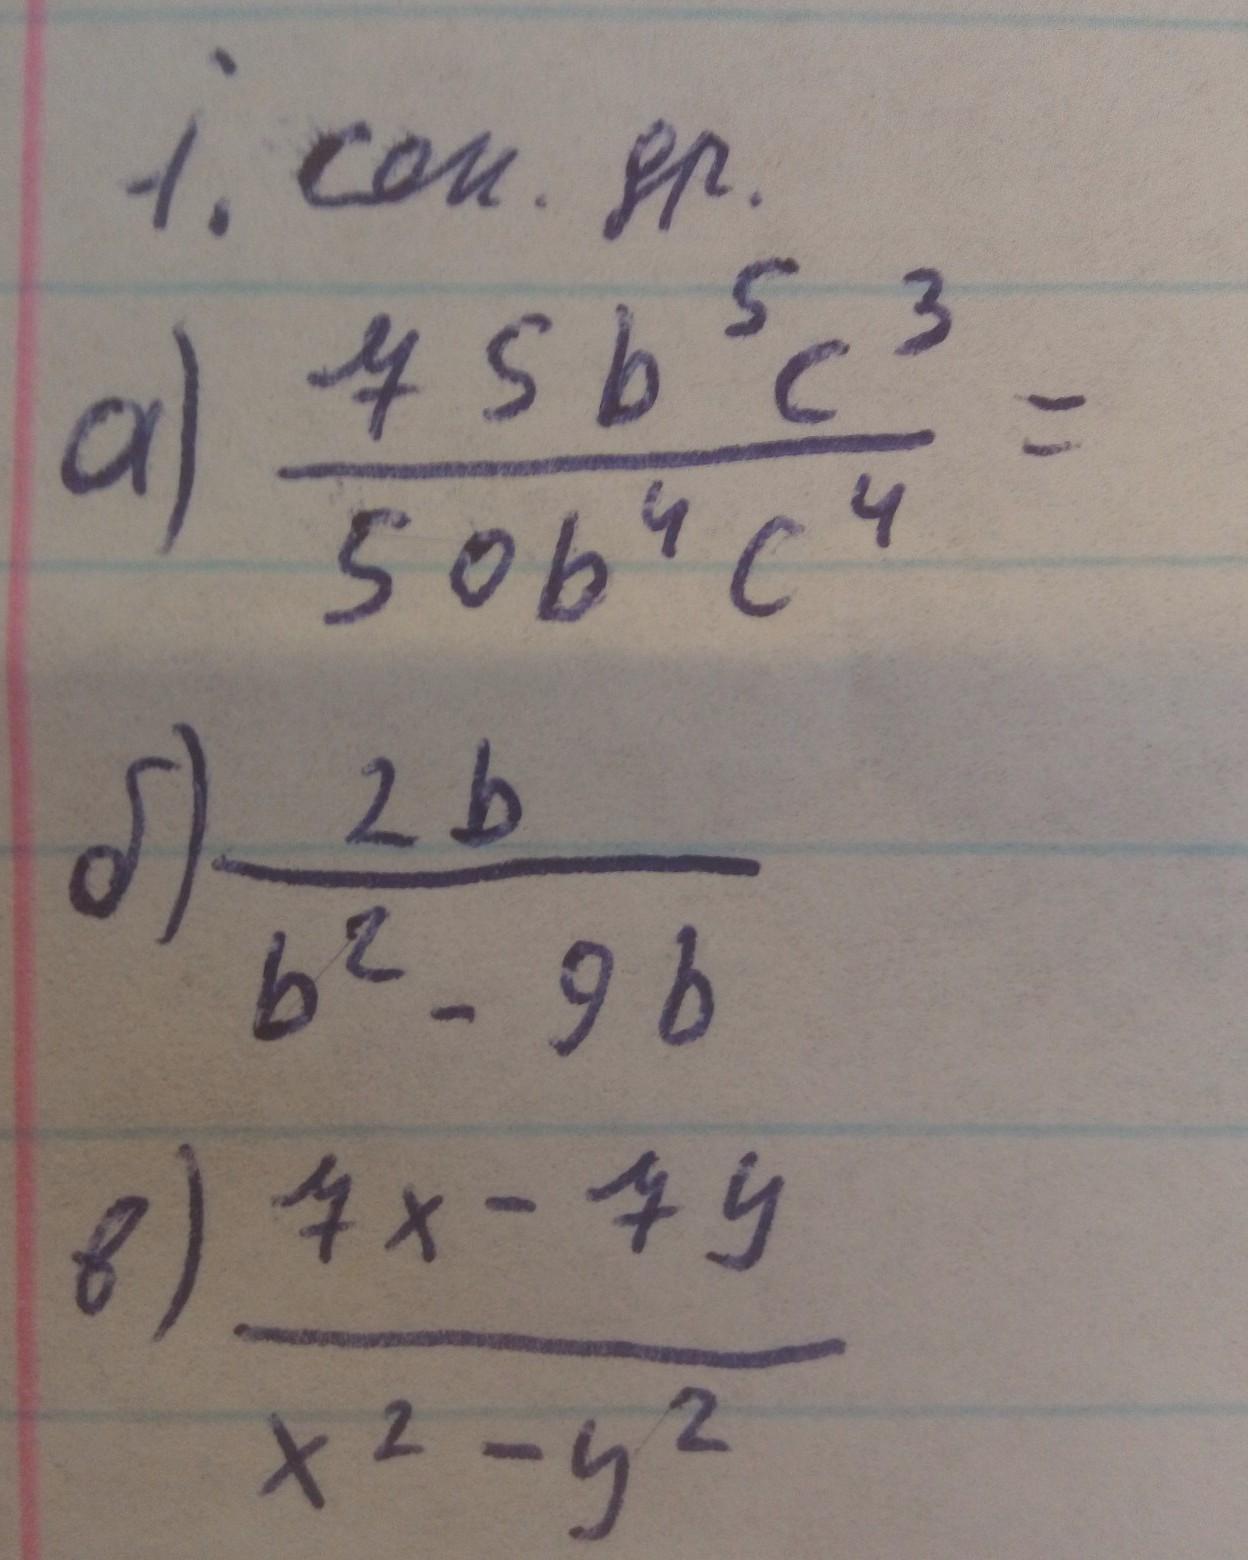 1. сок. др.
а) 75b⁵c³ =
50b⁴c⁴
б) 2b
b² - 9b
в) 7x - 7y
x² - y²